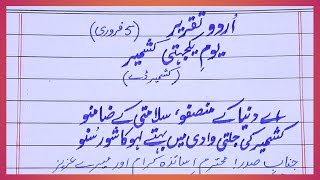 اُردو تقریر
(5 فروری)
یومِ یکجہتی کشمیر
(کشمیر ڈے)
اے دنیا کے منصفو، سلامتی کے ضامنو
کشمیر کی جلتی وادی میں بہتے لہو کا شور سُنو
جنابِ صدر! محترم اساتذہ کرام اور میرے عزیز